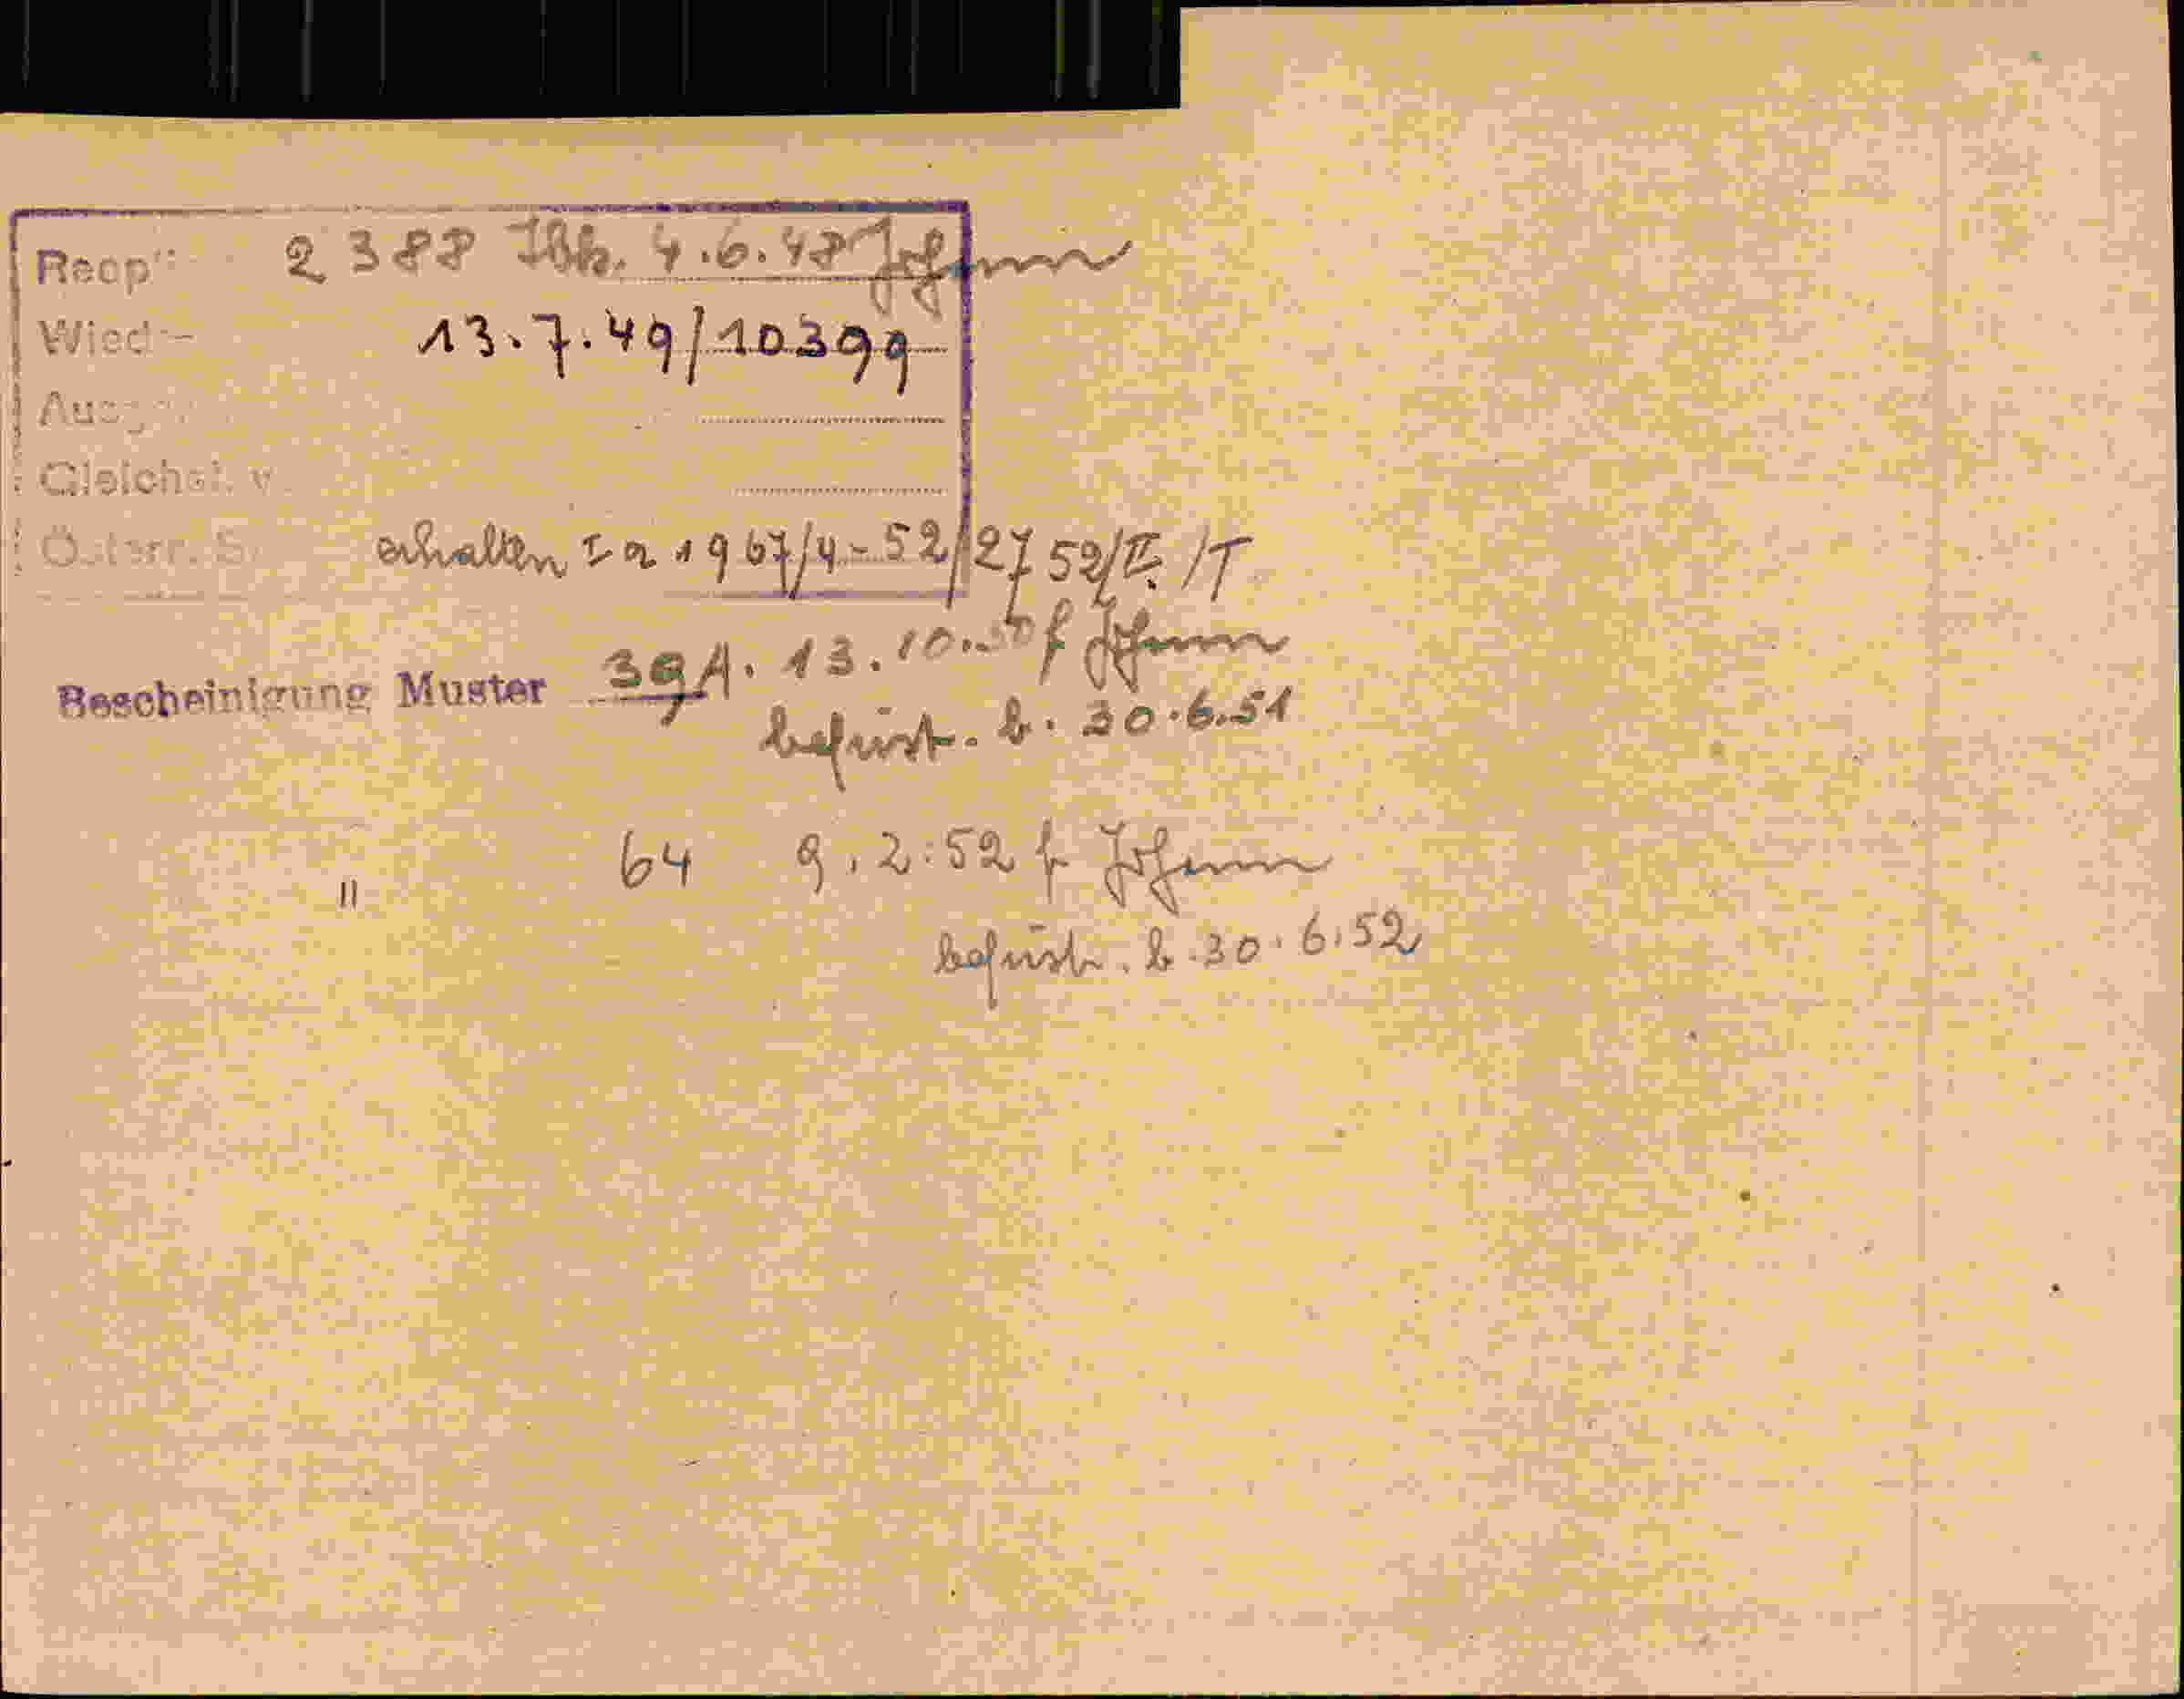 Reop 2388 Ibk. 4.6.48 Johann
Wied 13.7.49/10399
Ausg
Gleichst. v.
Österr. S. erhalten Ia 1967/4-52/2752/II/T
Bescheinigung Muster 39A. 13.10.50 f Johann
befrist. b. 30.6.51
" 64 9.2.52 f Johann
befrist. b. 30.6.52